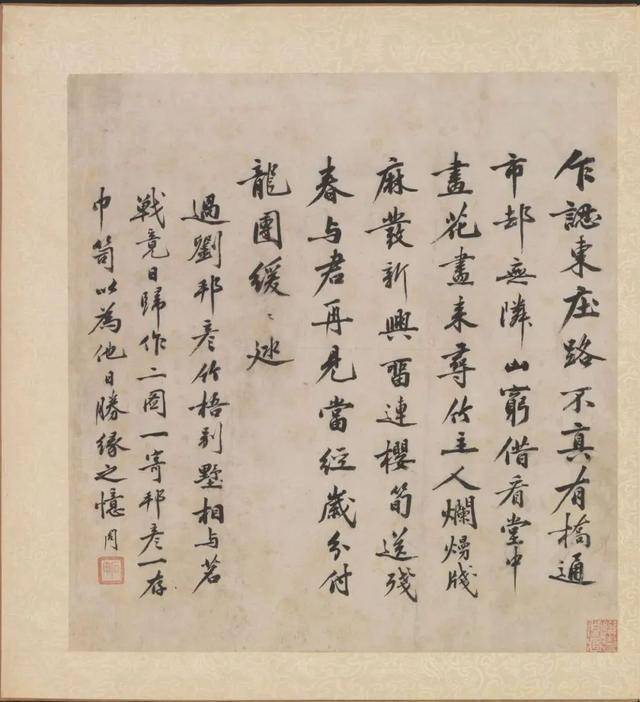 乍認東庄路不真有橋通
市却無隣山窮借看堂中
畫花盡来尋竹主人爛熳牋
麻發新興畱連櫻筍送殘
春与君再見當經歲分付
龍團緩〻廵
過劉邦彦竹梧别墅相与茗
戰竟日歸作二啚一寄邦彦一存
巾笥以為他日勝緣之憶周